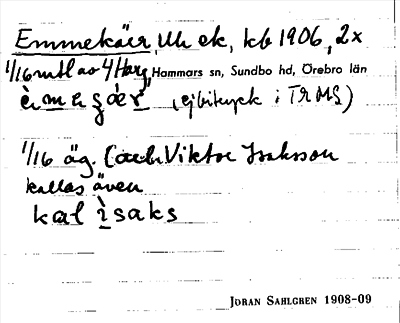 Emmekäer, Uh ek, kb 1906, 2x
1/16 mtl av 4 Harg Hammars sn, Sundbo hd, Örebro län
(ej bitryck i TRMS)
1/16 äg. Carl Viktor Isaksson
kallas även
kal isaks
JÖRAN SAHLGREN 1908-09